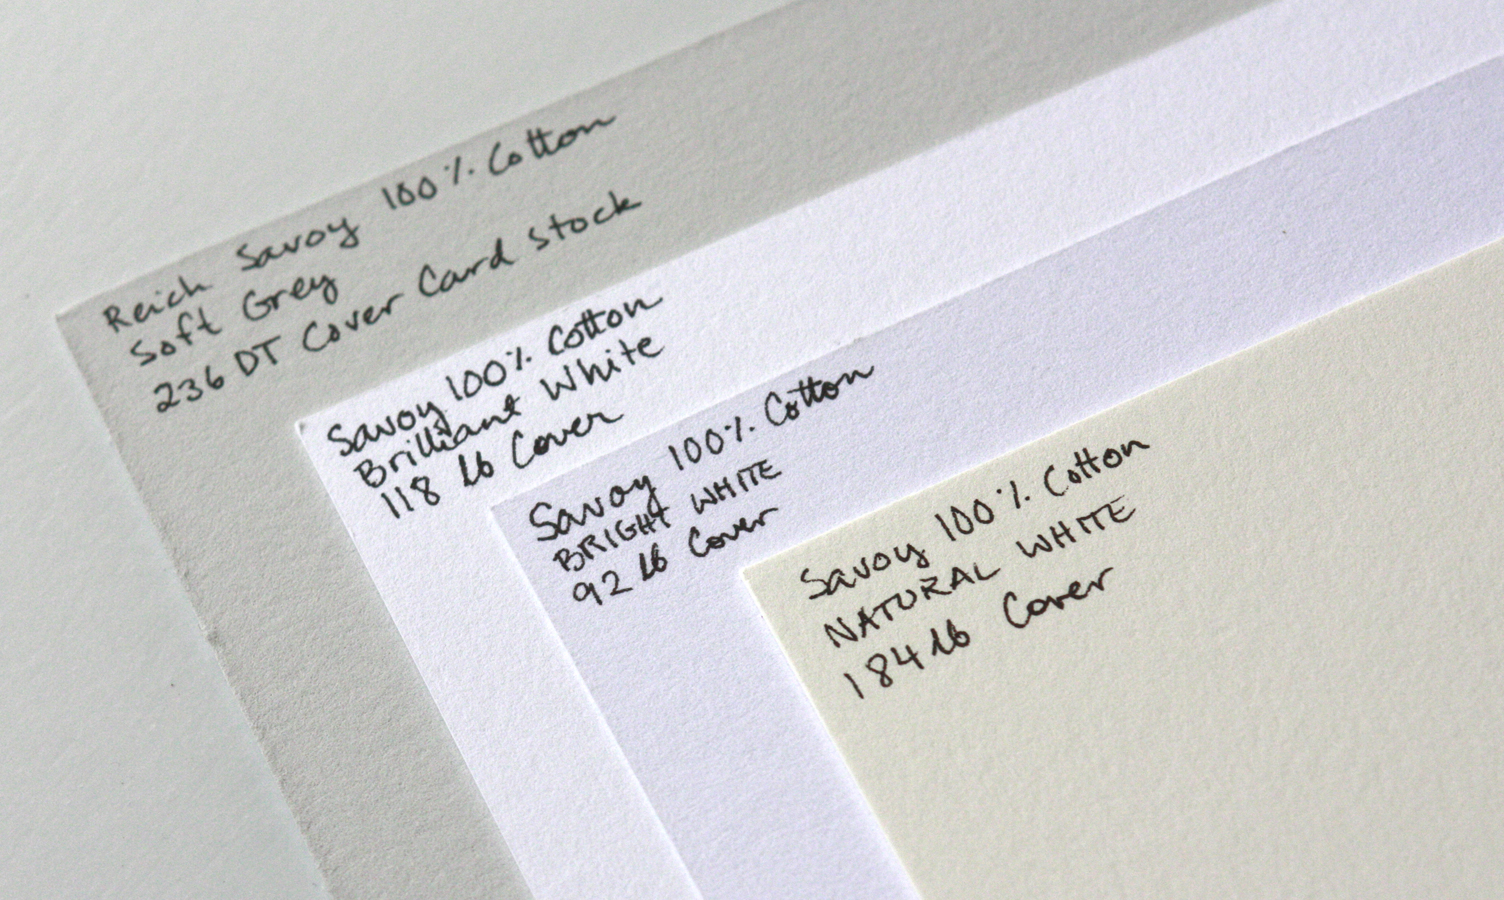 Reich Savoy 100% Cotton
Soft Grey
236 DT Cover Card stock
Savoy 100% Cotton
Brilliant White
118 lb Cover
Savoy 100% Cotton
BRIGHT WHITE
92 lb Cover
Savoy 100% Cotton
NATURAL WHITE
184 lb Cover